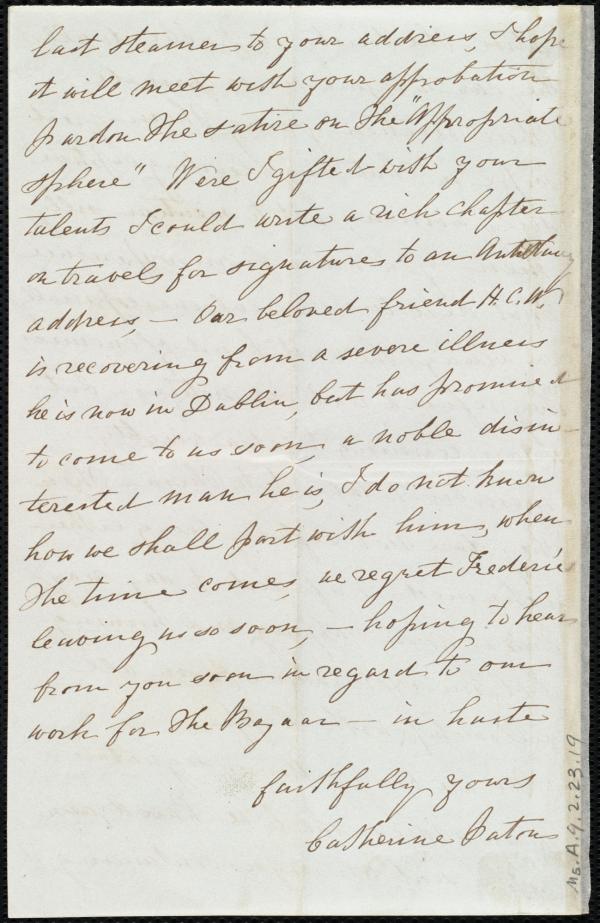 last steamer to your address, I hope
it will meet with your approbation
pardon the satire on the "Appropriate
sphere" Were I gifted with your
talents I could write a rich chapter
on travels for signatures to an Antislavery
address, — Our beloved friend H. C. W.
is recovering from a severe illness
he is now in Dublin, but has promised
to come to us soon, a noble disin-
terested man he is, I do not know
how we shall part with him, when
the time comes, we regret Frederick
leaving us so soon, — hoping to hear
from you soon in regard to our
work for the Bazaar — in haste
faithfully yours
Catherine Paton
Ms. A. 9. 2. 23. 19